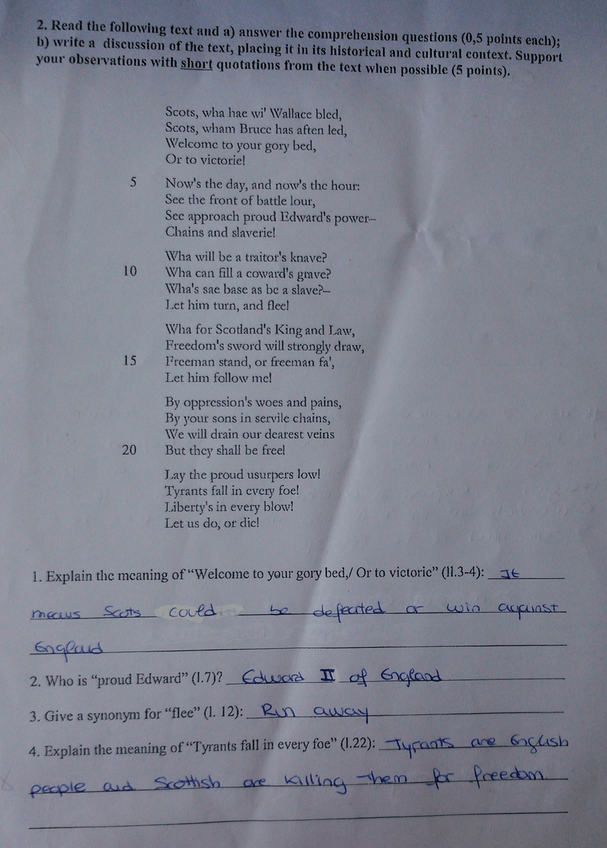 2. Read the following text and a) answer the comprehension questions (0,5 points each);
b) write a discussion of the text, placing it in its historical and cultural context. Support
your observations with short quotations from the text when possible (5 points).
Scots, wha hae wi' Wallace bled,
Scots, wham Bruce has aften led,
Welcome to your gory bed,
Or to victorie!
5 Now's the day, and now's the hour:
See the front of battle lour,
See approach proud Edward's power--
Chains and slaverie!
Wha will be a traitor's knave?
10 Wha can fill a coward's grave?
Wha's sae base as be a slave?--
Let him turn, and flee!
Wha for Scotland's King and Law,
Freedom's sword will strongly draw,
15 Freeman stand, or freeman fa',
Let him follow me!
By oppression's woes and pains,
By your sons in servile chains,
We will drain our dearest veins
20 But they shall be free!
Lay the proud usurpers low!
Tyrants fall in every foe!
Liberty's in every blow!
Let us do, or die!
1. Explain the meaning of "Welcome to your gory bed,/ Or to victorie" (ll.3-4): It
means Scots could be defeated or win against
England
2. Who is "proud Edward" (l.7)? Edward II of England
3. Give a synonym for "flee" (l. 12): Run away
4. Explain the meaning of "Tyrants fall in every foe" (l.22): Tyrants are English
people and Scottish are killing them for freedom